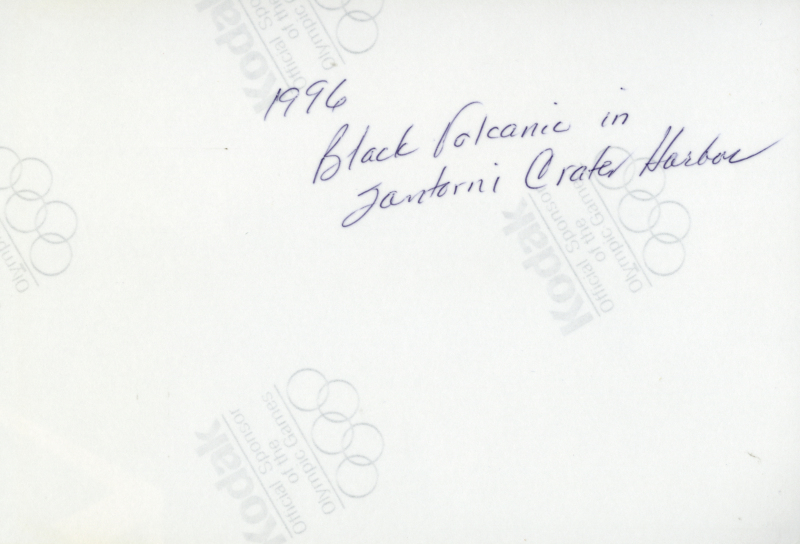 1996
Black Volcanic in
Santorni Crater Harbor
Kodak
Official Sponsor
of the
Olympic Games
Olympic
Kodak
Official Sponsor
of the
Olympic Games
Kodak
Official Sponsor
of the
Olympic Games